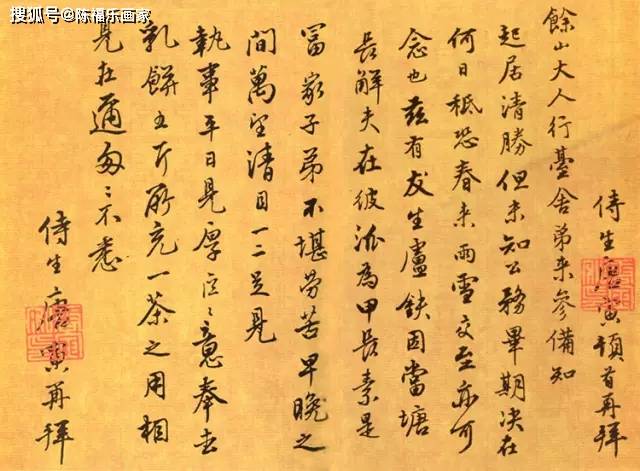 搜狐号@陈福乐画家
侍生唐寅頓首再拜
餘山大人行臺舍弟來參備知
起居清勝但未知公務畢期決在
何日秪恐春來雨雪交至亦可
念也茲有友生盧鈇因當塘
長解夫在彼派為甲長素是
富家子弟不堪勞苦早晚之
間萬望清目一二足見
執事平日見厚意奉去
乳餅五斤所充一茶之用相
見在邇匆〻不悉
侍生唐寅再拜